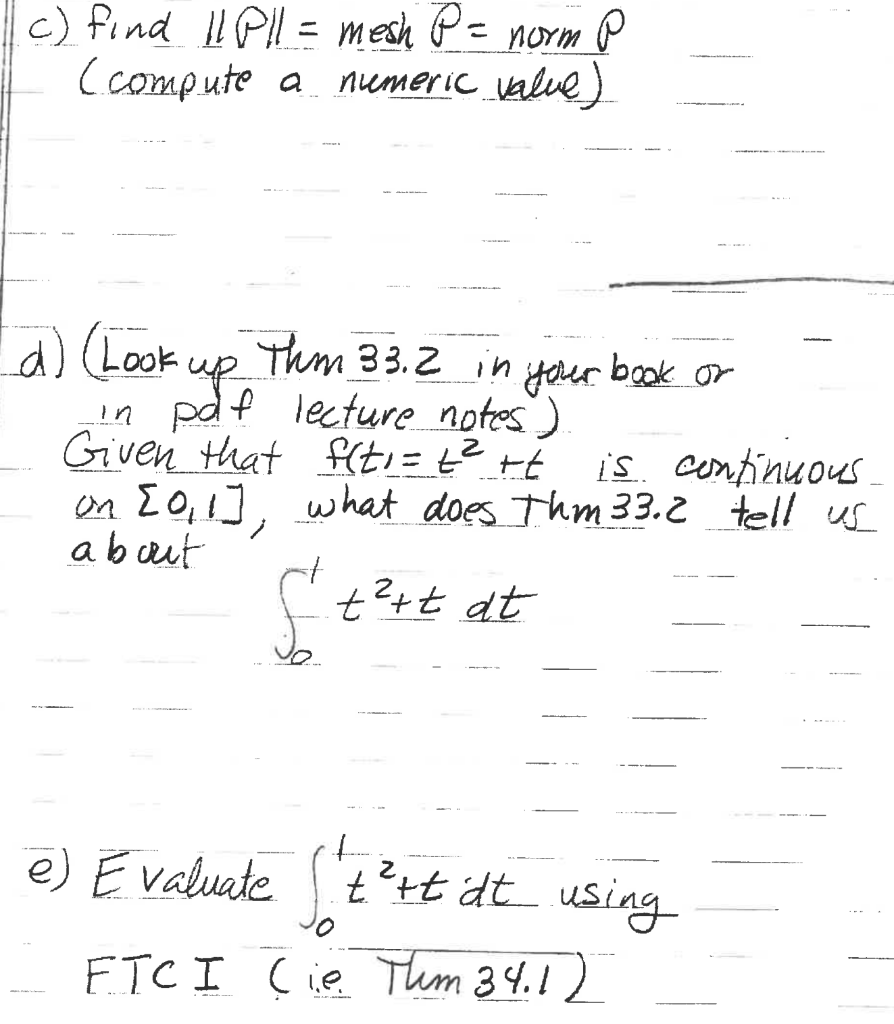 c) find ||P|| = mesh P = norm P
(compute a numeric value)
d) (Look up Thm 33.2 in your book or
in pdf lecture notes)
Given that f(t) = t² + t is continuous
on [0,1], what does Thm 33.2 tell us
about
∫₀¹ t² + t dt
e) Evaluate ∫₀¹ t² + t dt using
FTC I (i.e. Thm 34.1)